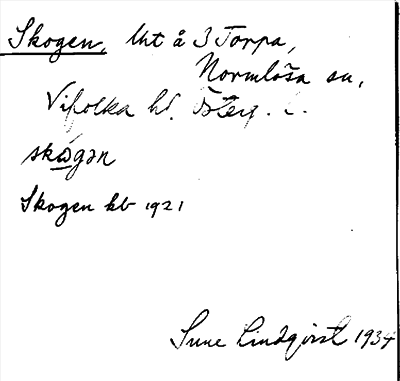 Skogen, lht å 3 Torpa,
Normlösa sn,
Vifolka hd. Österg. l.
skọ́gən
Skogen kb 1921
Sune Lindqvist 1934